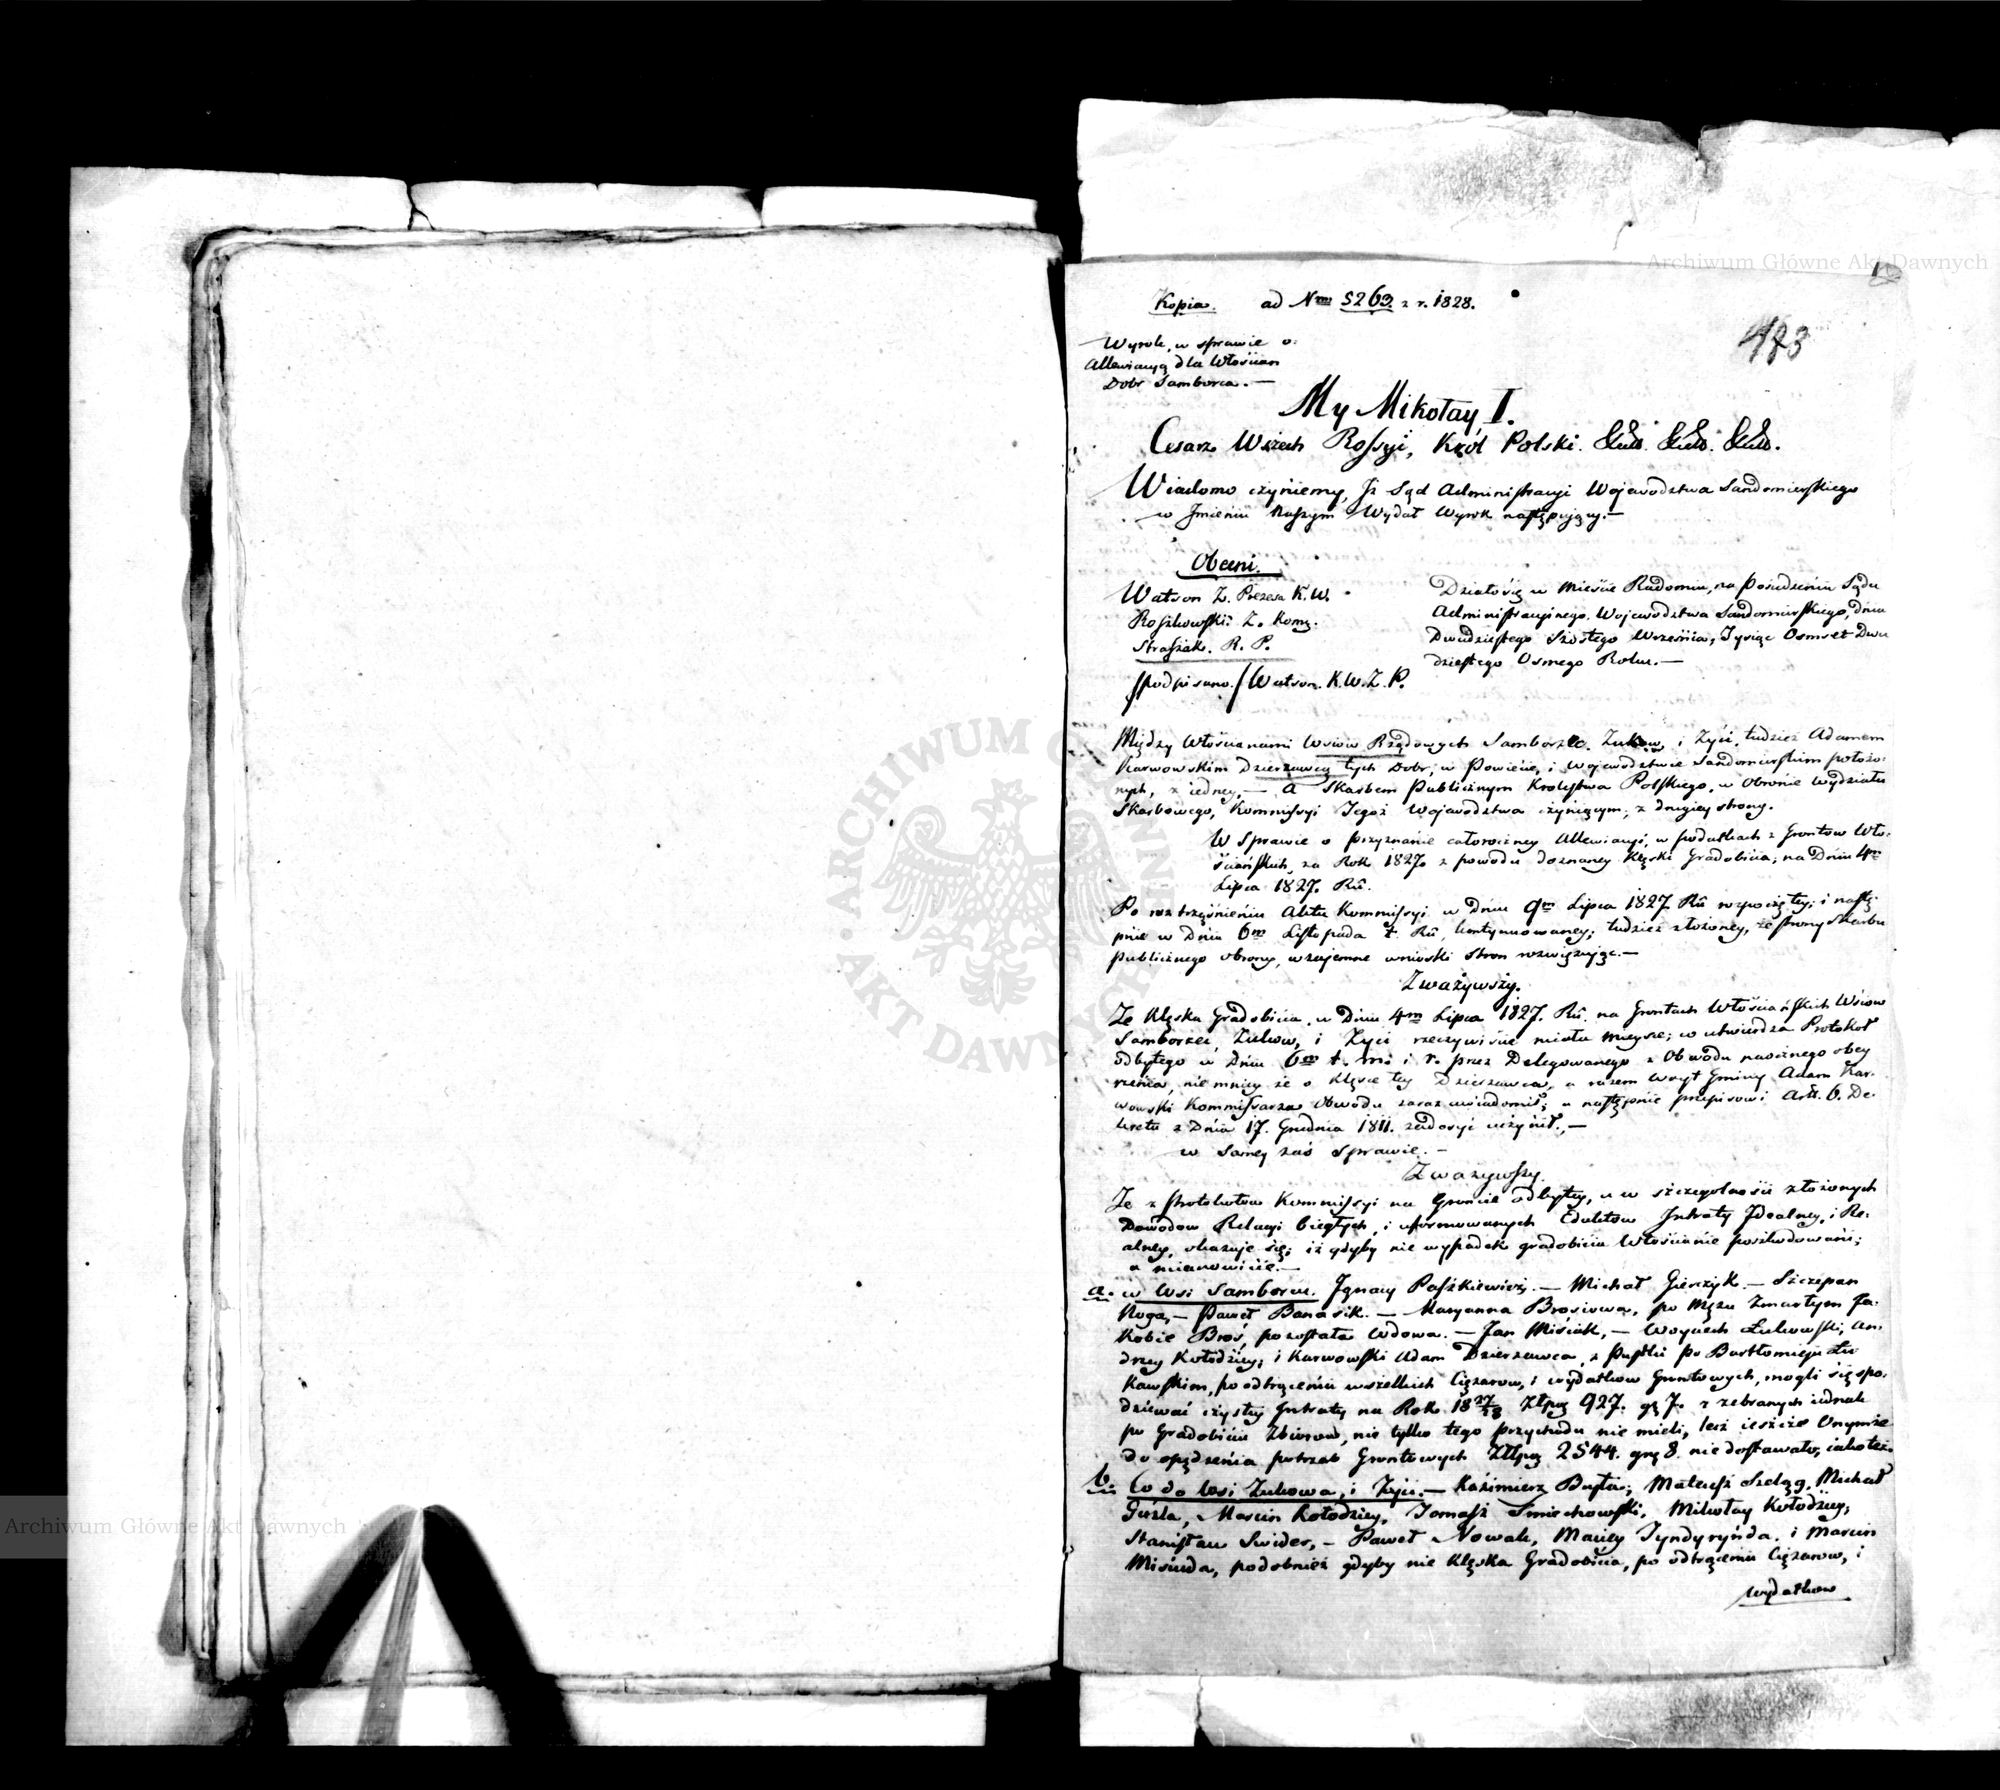 Kopia. ad Nrm 5263. z r. 1828.
473
Wyrok, w sprawie o
Allewiacyą dla Włościan
Dobr Samborca. —
My Mikołay I.
Cesarz Wszech Rossyi, Król Polski.
Wiadomo czyniemy, Iż Sąd Administracyi Woiewodztwa Sandomierskiego
w Imieniu Naszym Wydał Wyrok następujący. —
Obecni.
Watson Z. Prezesa K. W.
Z. Koms.
Straszak. R. P.
/Podpisano./ Watson. K. W. Z. P.
Działo się w Mieście Radomiu, na Posiedzeniu Sądu
Administracyinego Woiewodztwa Sandomierskiego, dnia
Dwudziestego Szóstego Września, Tysiąc Osmset Dwu
dziestego Osmego Roku. —
Między Włościanami Wsiów Rządowych Samborzec, Zuków, i Zyci, tudzież Adamem
Karwowskim Dzierzawcą tych Dobr, w Powiecie, i Woiewodztwie Sandomierskim położo-
nych, z iedney, — A Skarbem Publicznym Krolestwa Polskiego, w Obronie Wydziału
Skarbowego, Kommissyi Tegoż Woiewodztwa czyniącym, z drugiey strony.
W Sprawie o przyznanie całoroczney Allewiacyi, w podatkach z Gruntow Wło-
ściańskich, za Rok 1827. z powodu doznaney Klęski Gradobicia, na Dniu 4m
Lipca 1827. Ru.
Po roztrząśnieniu Aktu Kommissyi w Dniu 9m Lipca 1827 Ru rozpoczętey, i nastę-
pnie w Dniu 6m Listopada t. Ru, kontynuowaney; tudzież złożoney, ze strony Skarbu
Publicznego obrony, wzajemne wnioski Stron rozwiązując. —
Zważywszy.
Ze Klęska Gradobicia, w Dniu 4m Lipca 1827. Ru. na Gruntach Włościańskich Wsiow
Samborzec, Zukow, i Zyci rzeczywiście miała mieysce; utwierdza Protokoł
odbytego w Dniu 6m t. m. i r. przez Delegowanego z Obwodu naocznego obey
rzenia, niemniey że o Klęsce tey Dzierzawca, a razem Woyt Gminy Adam Kar-
wowski Kommissarza Obwodu zaraz uwiadomił; a następnie przepisowi Artt. 6. De-
kretu z Dnia 17. Grudnia 1811. zadosyć uczynił. —
w Samey zaś Sprawie. —
Zważywszy.
Ze z Protokułow Kommissyi na Gruncie odbytey, a w szczegolności złożonych
Dowodow Relacyi biegłych, i uformowanych Edukłow Intraty Idealney, i Re-
alney, okazuje się; iż gdyby nie wypadek gradobicia Włościanie poszkodowani;
a mianowicie. —
a. w Wsi Samborcu. Ignacy Paszkiewicz. — Michał Gierczyk — Szczepan
Noga, — Paweł Banasik. — Maryanna Brosiowa, po Mężu Zmarłym Ja-
kobie Broś, pozostała Wdowa. — Jan Misiak, — Woyciech Łukowski, An-
drzey Kołodziey, i Karwowski Adam Dzierzawca, z Pustki po Bartłomieju Łu
kawskim, po odtrąceniu wszelkich Ciężarow, i wydatkow Gruntowych, mogli się spo-
dziewać czystey Intraty na Rok 1827/28 Złpo 927. gr 7. z zebranych iednak
po Gradobiciu Zbiorow, nie tylko tego przychodu nie mieli, lecz ieszcze Onymże
do opędzenia potrzeb Gruntowych Złpo 2544. gro 8. niedostawało, iako też.
b. Co do Wsi Zukowa, i Zyci. — Kaźimierz Busta; Mateusz Szeląg, Michał
Guzla, Marcin Kołodziey, Tomasz Smiechowski, Mikołay Kołodziey;
Stanisław Swider, — Paweł Nowak, Maciey Tyndyrynda, i Marcin
Misiuda, podobnież gdyby nie Klęska Gradobicia, po odtrąceniu Ciężarow, i
wydatkow
Archiwum Główne Akt Dawnych
Archiwum Główne Akt Dawnych
ARCHIWUM GŁÓWNE AKT DAWNYCH